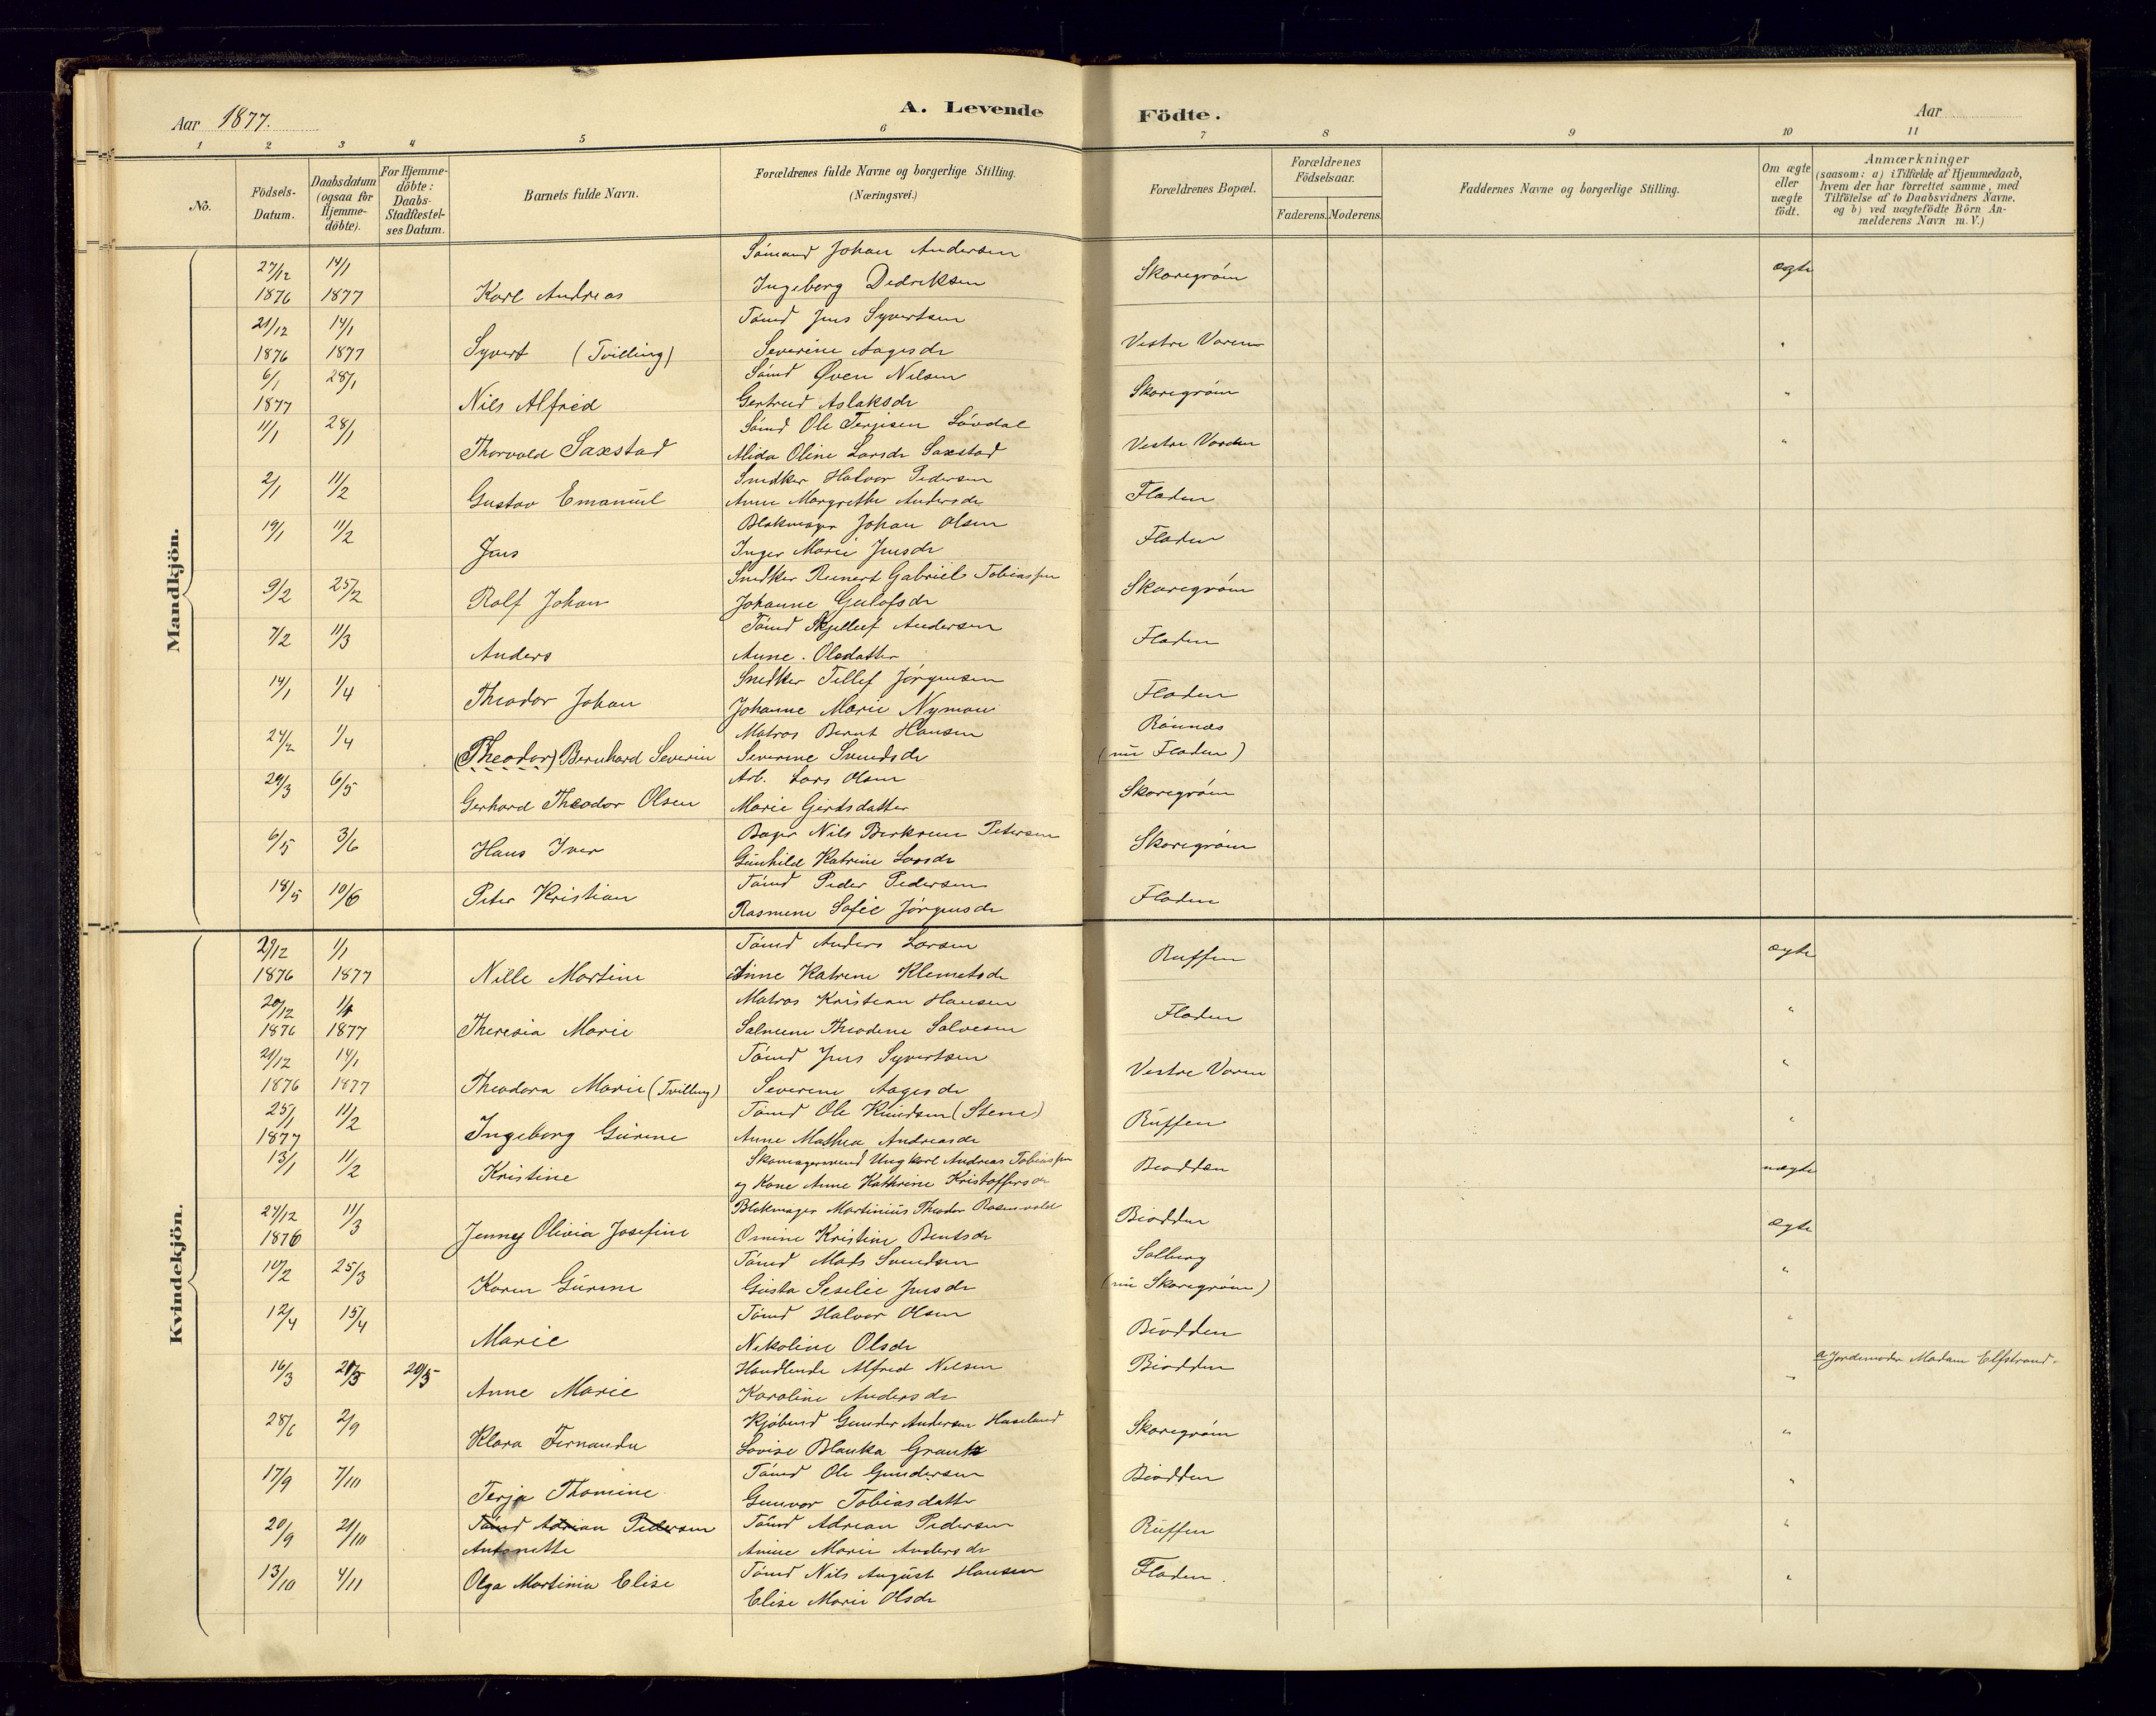 A. Levende Födte.
Aar 1877.
Aar
1 2 3 4 5 6 7 8 9 10 11
No.
Födsels-Datum.
Daabsdatum (ogsaa for Hjemme-döbte).
For Hjemme-döbte: Daabs-Stadfæstel-ses Datum.
Barnets fulde Navn.
Forældrenes fulde Navne og borgerlige Stilling. (Næringsvei.)
Forældrenes Bopæl.
Forældrenes Födselsaar.
Faderens. Moderens.
Faddernes Navne og borgerlige Stilling.
Om ægte eller uægte födt.
Anmærkninger
(saasom: a) i Tilfælde af Hjemmedaab,
hvem der har forrettet samme, med
Tilföielse af to Daabsvidners Navne,
og b) ved uægtefödte Börn An-
melderens Navn m. V.)
Mandkjön.
Sömand Johan Andersen
27/12 1876 14/1 1877 Karl Andreas Ingeborg Dedreksen Skaregröm ægte
Tömd Jens Syvertsen
21/12 1876 14/1 1877 Syvert (Tvilling) Severine Aagesdr Vestre Voren "
Sömd Öven Nilsen
6/1 1877 28/1 Nils Alfred Gertrud Aslaksdr Skaregröm "
Sömd Ole Terjesen Lövdal
11/1 28/1 Thorvald Saxstad Alida Oline Larsdr Saxstad Vestre Vorden "
Snedker Halvor Pedersen
2/1 11/2 Gustav Emanuel Anne Margrethe Andersdr Fladen
Blokmager Johan Olsen
19/1 11/2 Jens Inger Marie Jensdr Fladen
Snedker Reinert Gabriels Tobiassen
9/2 25/2 Rolf Johan Johanne Gulofsdr Skaregröm
Tömd Skjellef Andersen
7/2 11/3 Anders Anne Olsdatter Fladen
Snedker Tellef Jörgensen
14/1 1/4 Theodor Johan Johanne Marie Nyman Fladen
Matros Bernt Hansen Rönnes
24/2 1/4 (Theodor) Bernhard Severin Severine Svendsdr (nu Fladen)
Arb. Lars Olsen
29/3 6/5 Gerhard Theodor Olsen Marie Gjertsdatter Skaregröm
Bager Nils Berkrem Petersen
6/5 3/6 Hans Iver Gunhild Katrine Larsdr Skaregröm
Tömd Peder Pedersen
18/5 10/6 Peter Kristian Rasmine Sofie Jörgensdr Fladen
Kvindekjön.
Tömd Anders Larsen
29/12 1876 1/1 1877 Nille Martine Anne Katrine Klemetsdr Ruffen ægte
Matros Kristian Hansen
20/12 1876 1/1 1877 Theresia Marie Salmine Theodine Salvesen Fladen "
Tömd Jens Syvertsen
21/12 1876 14/1 1877 Theodora Marie (Tvilling) Severine Aagesdr Vestre Voren "
Tömd Ole Knudsen (Stene)
25/1 1877 11/2 Ingeborg Gurine Anne Mathea Andreasdr Ruffen "
Skomagersvend Ungkarl Andreas Tobiassen
13/1 11/2 Kristine og Kone Anne Kathrine Kristoffersdr Biodden uægte
Blokmager Martinius Theodor Rosenvold
24/12 1876 11/3 Jenny Olivia Josefine Omine Kristine Bentsdr Biodden ægte
Tömd Mads Svendsen Solberg
10/2 25/3 Karen Gurine Gusta Seselie Jensdr (nu Skaregröm) "
Tömd Halvor Olsen
12/4 15/4 Marie Nikoline Olsdr Biodden "
Handlende Alfred Nilsen
16/3 20/3 20/5 Anne Marie Karoline Andersdr Biodden " a Jordemoder Madam Elfstrand
Kjöbmd Gunder Andersen Haseland
28/6 2/9 Klara Fernanda Lovise Blanka Grantz Skaregröm "
Tömd Ole Gundersen
17/9 7/10 Terja Thomine Gunvor Tobiasdatter Biodden "
20/9 21/10 Tömd Adrian Pedersen Tömd Adrian Pedersen Ruffen "
Antonette Anine Marie Andersdr
13/10 4/11 Olga Martinia Elise Tömd Nils August Hansen Fladen. "
Elise Marie Olsdr